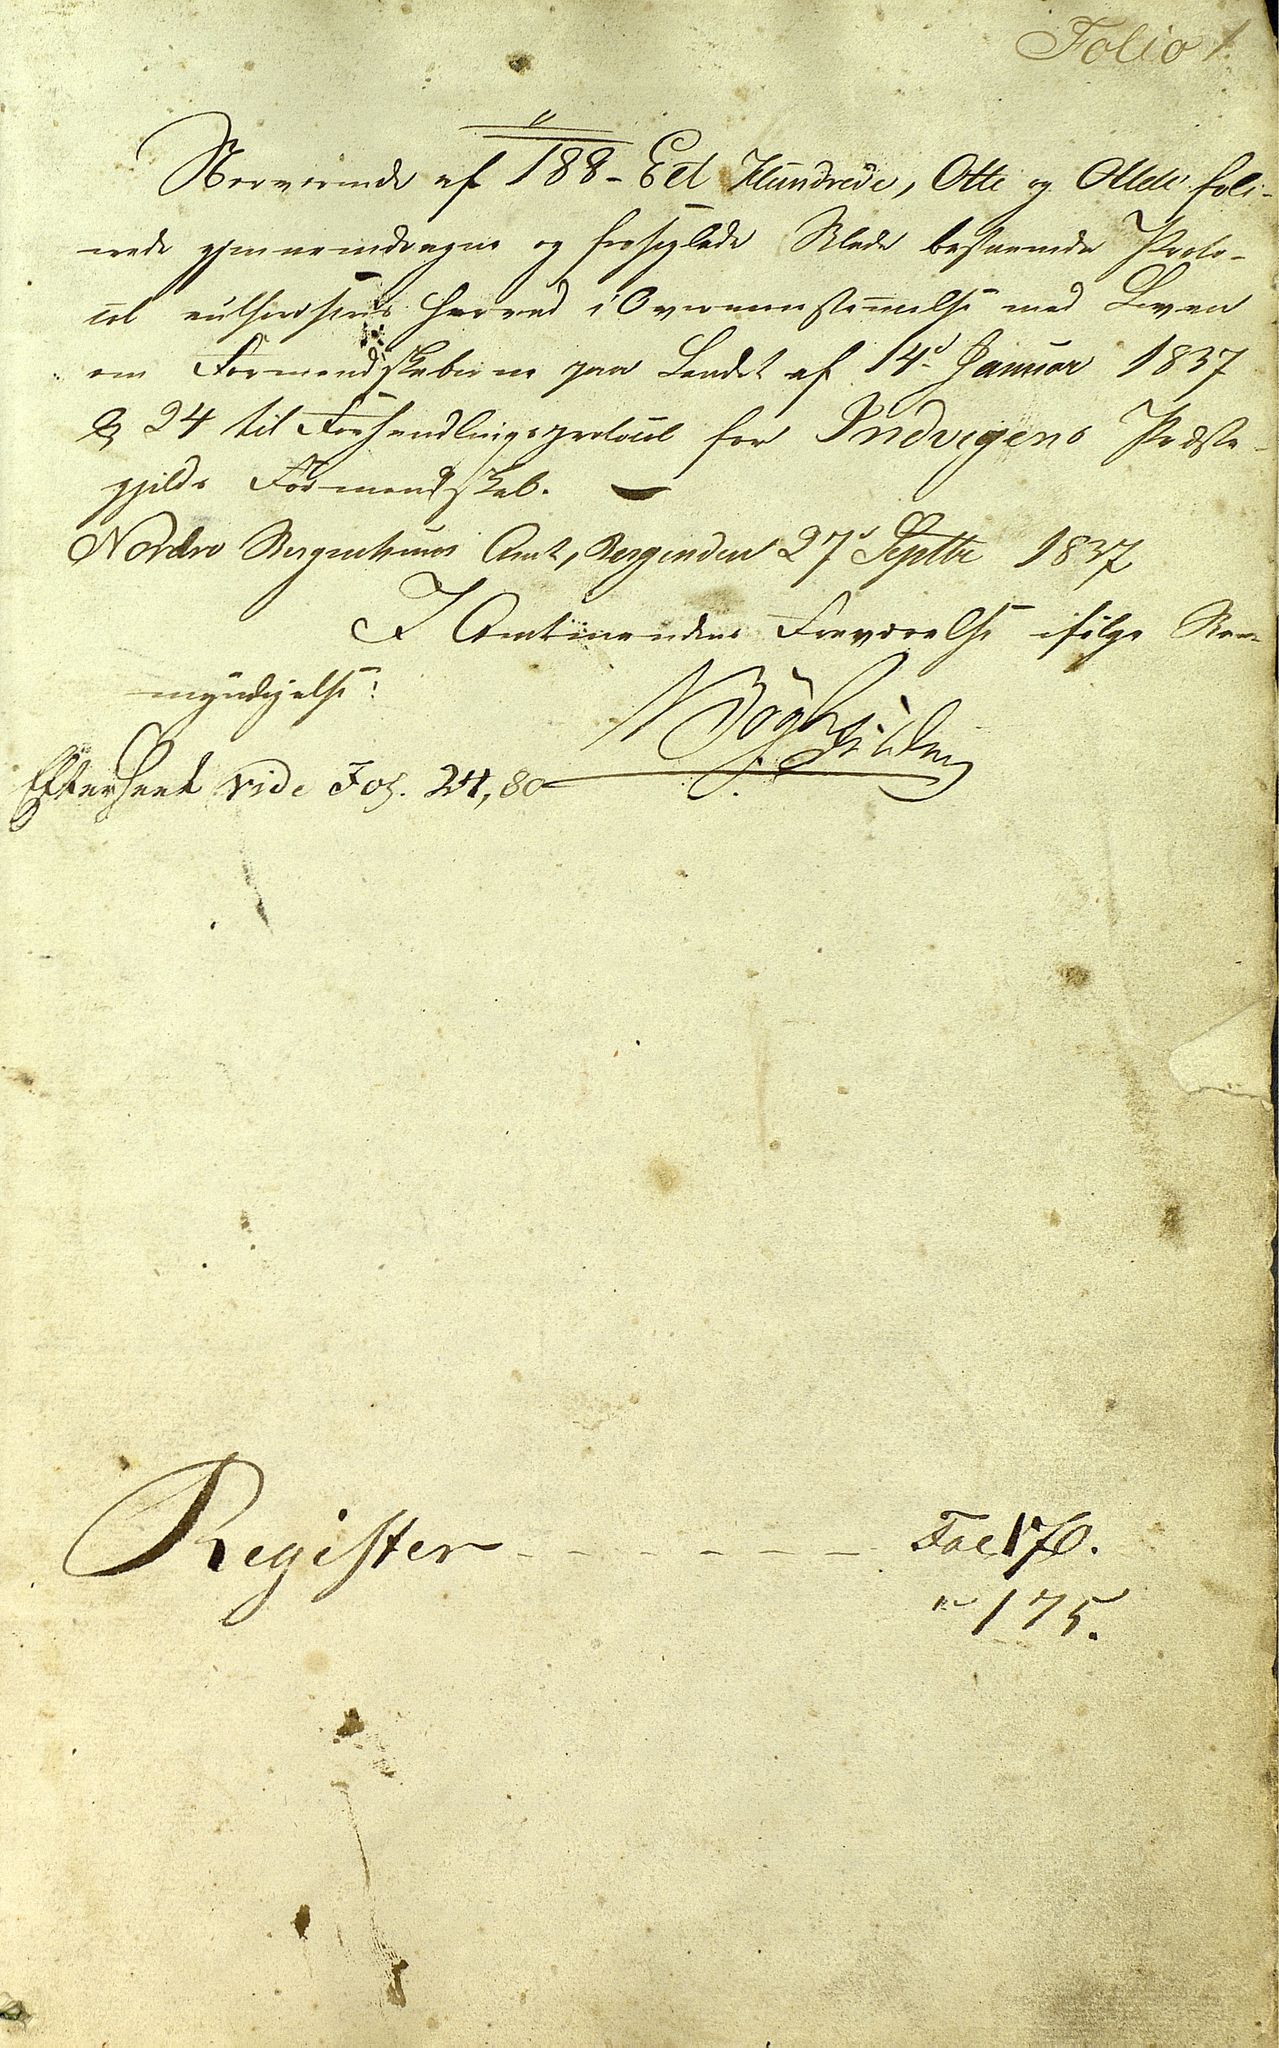 Folio 1.
Nærværende af 188 - Eet Hundrede, Otte og Ottetí foli-
erede gjennemdragne og forseglede Blade bestaaende Proto-
col authoriseres herved i Overeensstemmelse med Loven
om Formandskaberne paa Landet af 14d Januar 1837
§ 24 til Forhandlingsprotocol for Indvigens Præste-
gjelds Formandskab.
Nordre Bergenhuus Amt, Bergen den 27d Septbr 1837
I Amtmandens Fraværelse ifølge Be-
myndigelse:
N Bøgh
Efterseet vide Fol. 24, 80
Register - - - - - - - Fol 170.
" 175.